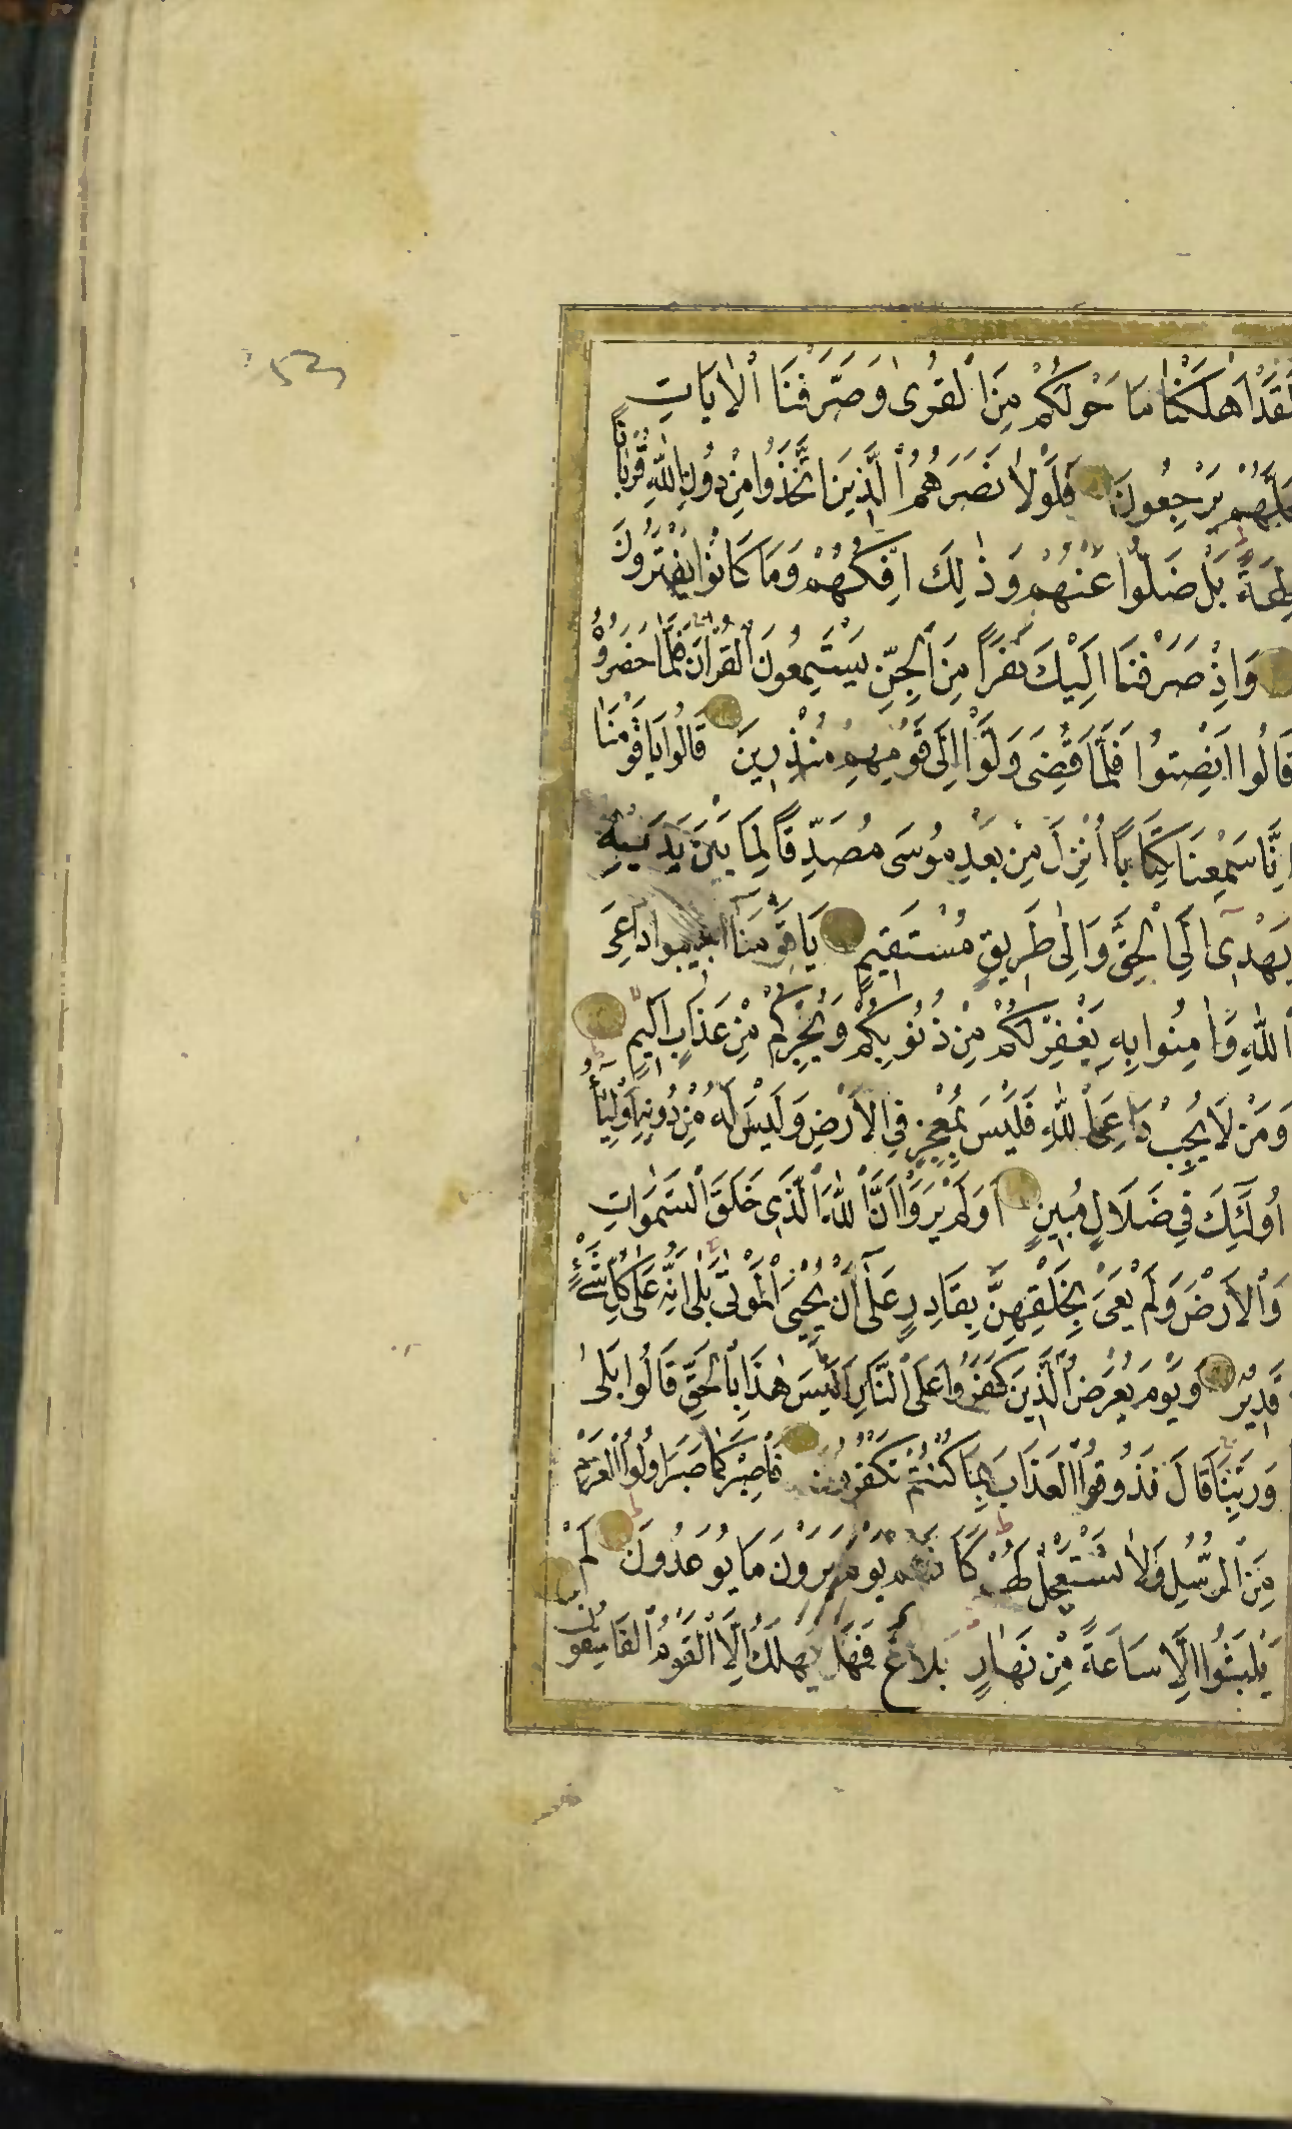 لَقَدْ اَهْلَكْنَا مَا حَوْلَكُمْ مِنَ الْقُرٰى وَصَرَّفْنَا الْاٰيَاتِ
يَرْجِعُونَ فَلَوْلَا نَصَرَهُمُ الَّذِينَ اتَّخَذُوا مِنْ دُونِ اللّٰهِ قُرْبَانًا
بَلْ ضَلُّوا عَنْهُمْ وَذٰلِكَ اِفْكُهُمْ وَمَا كَانُوا يَفْتَرُونَ
وَاِذْ صَرَفْنَا اِلَيْكَ نَفَرًا مِنَ الْجِنِّ يَسْتَمِعُونَ الْقُرْاٰنَ فَلَمَّا حَضَرُوهُ
قَالُوا اَنْصِتُوا فَلَمَّا قُضِىَ وَلَّوْا اِلٰى قَوْمِهِمْ مُنْذِرِينَ قَالُوا يَاقَوْمَنَا
اِنَّا سَمِعْنَا كِتَابًا اُنْزِلَ مِنْ بَعْدِ مُوسَى مُصَدِّقًا لِمَا بَيْنَ يَدَيْهِ
يَهْدِى اِلَى الْحَقِّ وَاِلٰى طَرِيقٍ مُسْتَقِيمٍ يَاقَوْمَنَا اَجِيبُوا دَاعِىَ
اللّٰهِ وَاٰمِنُوا بِهِ يَغْفِرْ لَكُمْ مِنْ ذُنُوبِكُمْ وَيُجِرْكُمْ مِنْ عَذَابٍ اَلِيمٍ
وَمَنْ لَا يُجِبْ دَاعِىَ اللّٰهِ فَلَيْسَ بِمُعْجِزٍ فِى الْاَرْضِ وَلَيْسَ لَهُ مِنْ دُونِهِ اَوْلِيَاءُ
اُولٰئِكَ فِى ضَلَالٍ مُبِينٍ اَوَلَمْ يَرَوْا اَنَّ اللّٰهَ الَّذِى خَلَقَ السَّمٰوَاتِ
وَالْاَرْضَ وَلَمْ يَعْىَ بِخَلْقِهِنَّ بِقَادِرٍ عَلٰى اَنْ يُحْيِىَ الْمَوْتٰى بَلٰى اِنَّهُ عَلٰى كُلِّ شَىْءٍ
قَدِيرٌ وَيَوْمَ يُعْرَضُ الَّذِينَ كَفَرُوا عَلَى النَّارِ اَلَيْسَ هٰذَا بِالْحَقِّ قَالُوا بَلٰى
وَرَبِّنَا قَالَ فَذُوقُوا الْعَذَابَ بِمَا كُنْتُمْ تَكْفُرُونَ فَاصْبِرْ كَمَا صَبَرَ اُولُوا الْعَزْمِ
مِنَ الرُّسُلِ وَلَا تَسْتَعْجِلْ لَهُمْ كَاَنَّهُمْ يَوْمَ يَرَوْنَ مَا يُوعَدُونَ لَمْ
يَلْبَثُوا اِلَّا سَاعَةً مِنْ نَهَارٍ بَلَاغٌ فَهَلْ يُهْلَكُ اِلَّا الْقَوْمُ الْفَاسِقُونَ